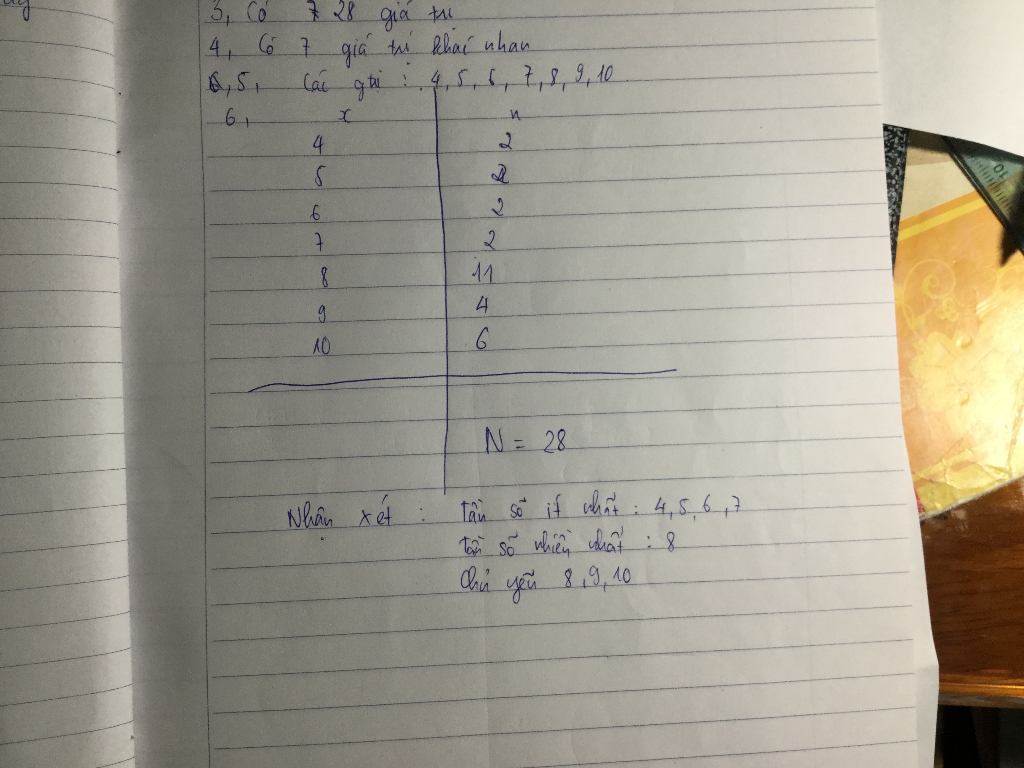 3, Có 28 giá trị
4, Có 7 giá trị khác nhau
5, Các gtri : 4, 5, 6, 7, 8, 9, 10
6, x n
4 2
5 2
6 2
7 2
8 11
9 4
10 6
N = 28
Nhận xét : Tần số ít nhất : 4, 5, 6, 7
tần số nhiều nhất : 8
Chủ yếu 8, 9, 10